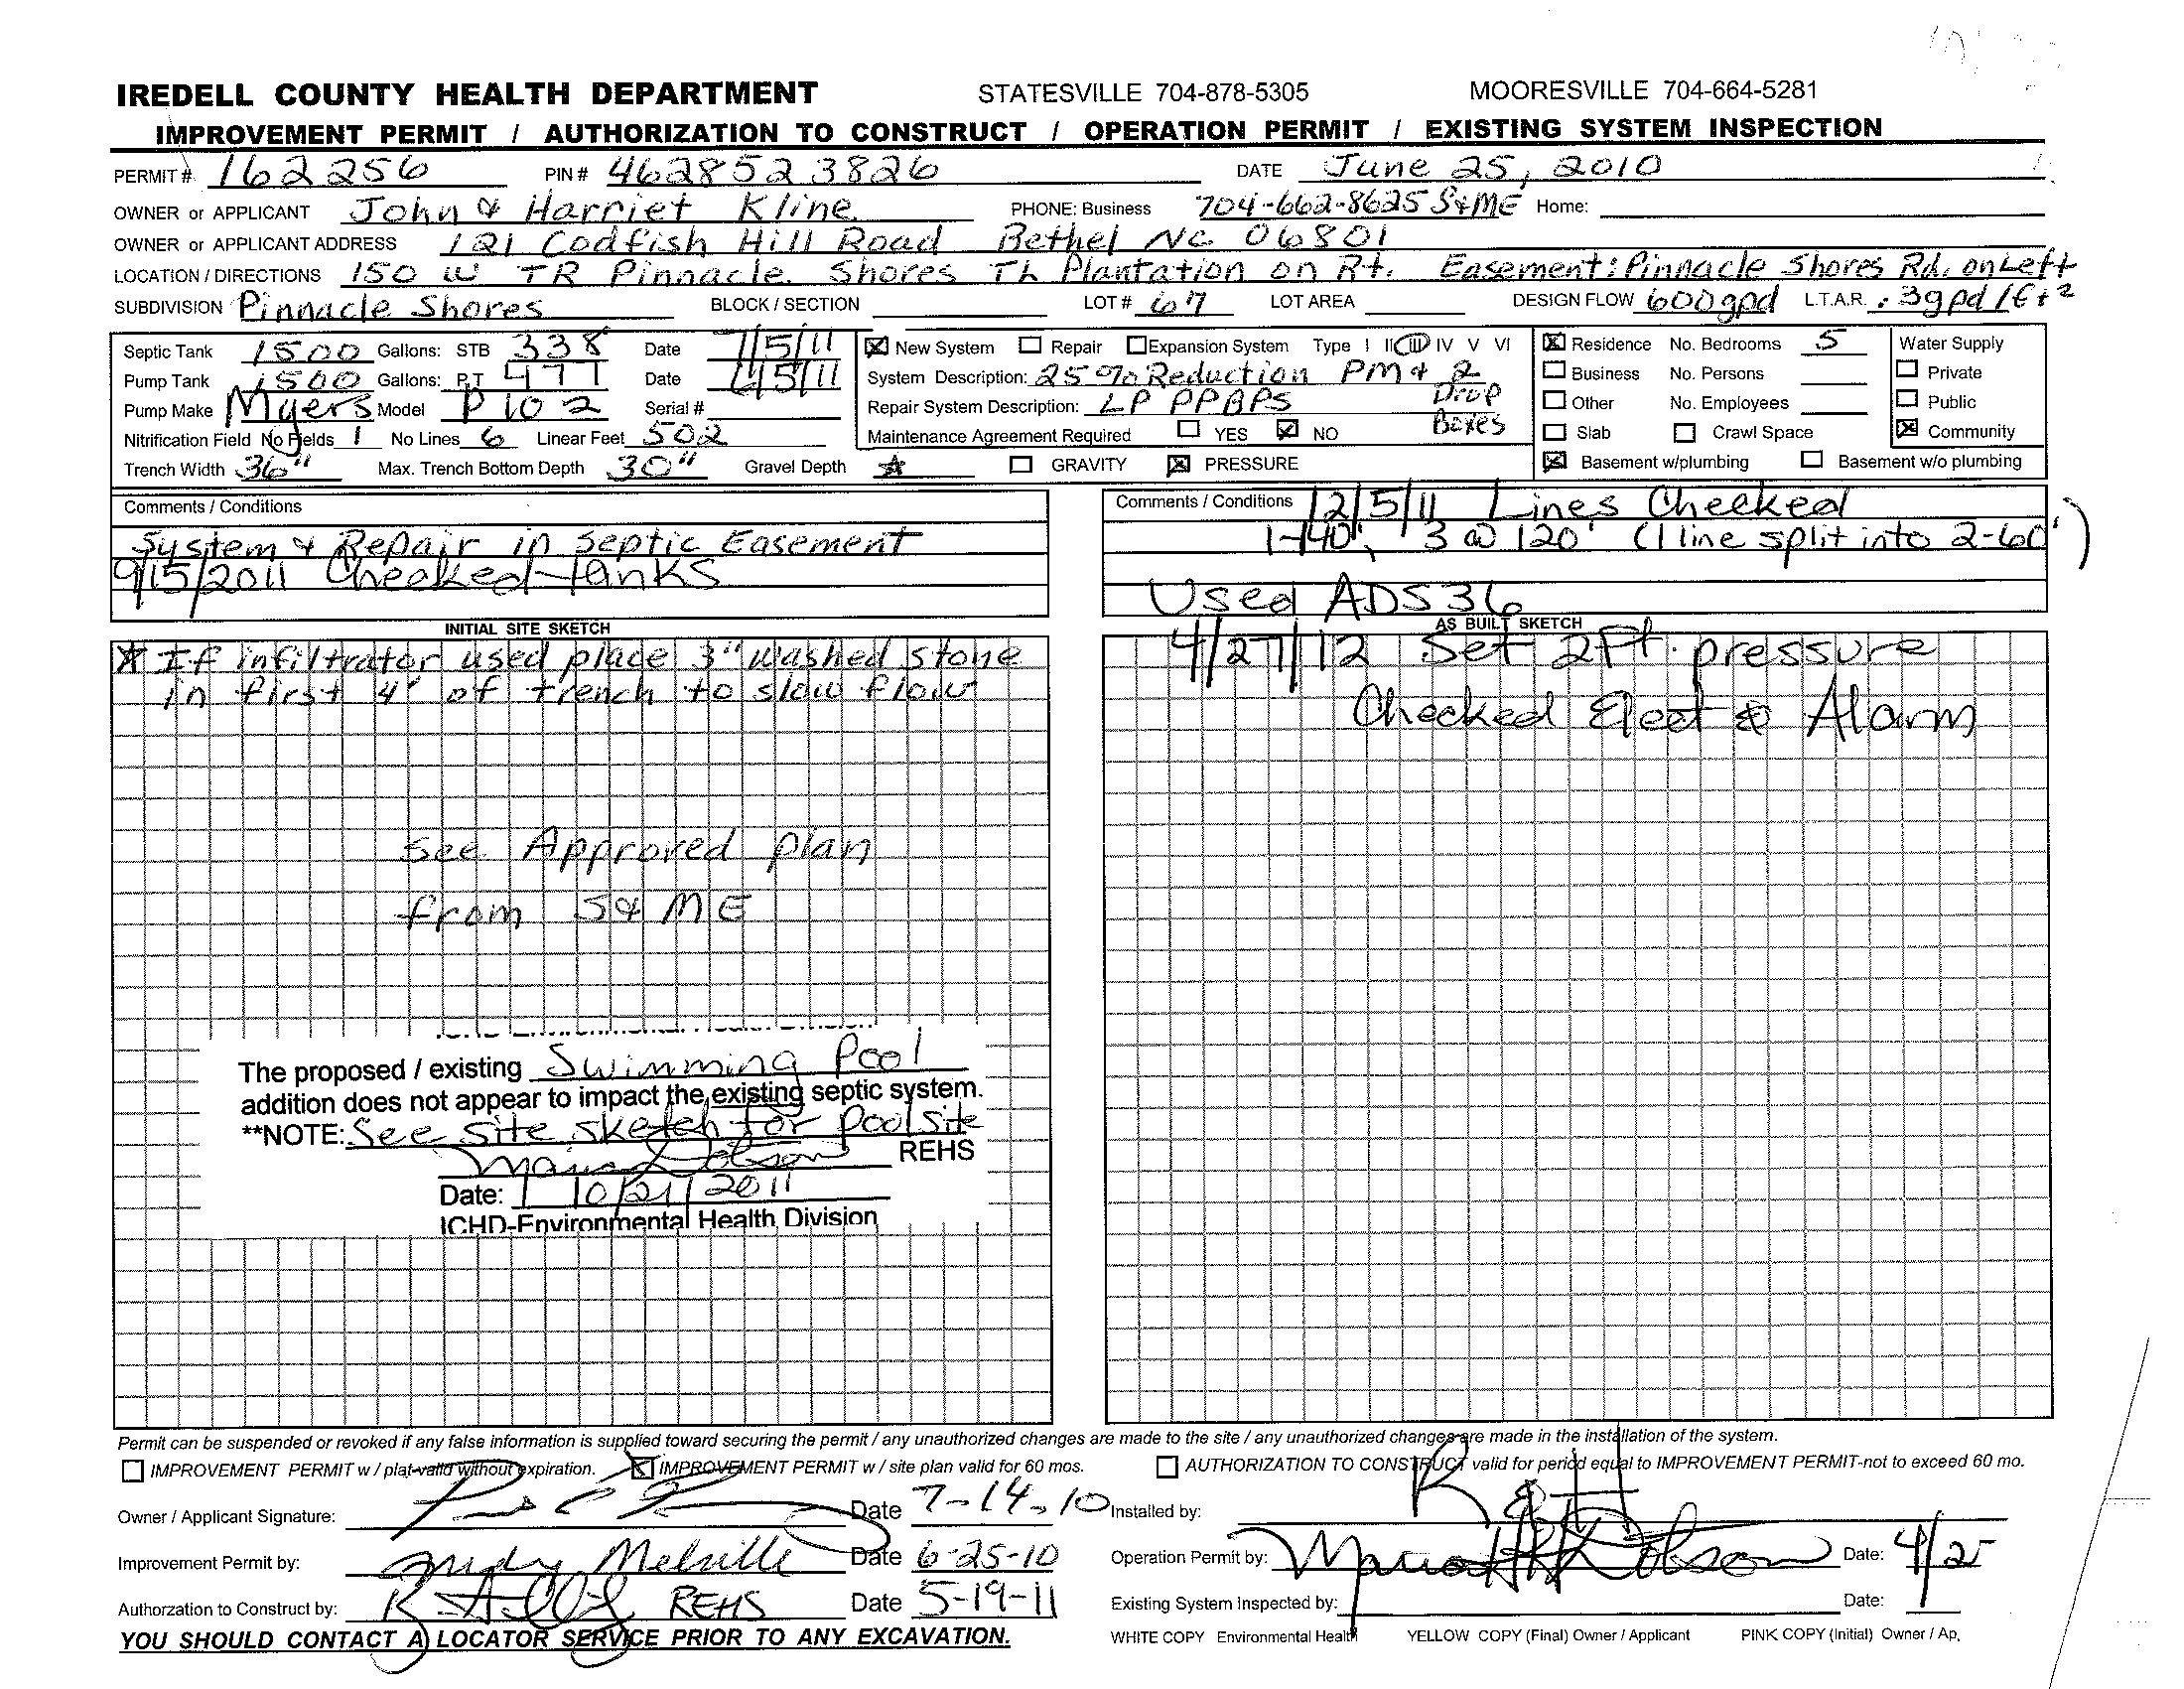 IREDELL COUNTY HEALTH DEPARTMENT STATESVILLE 704-878-5305 MOORESVILLE 704-664-5281
IMPROVEMENT PERMIT / AUTHORIZATION TO CONSTRUCT / OPERATION PERMIT / EXISTING SYSTEM INSPECTION
PERMIT # 162256 PIN # 4628523826 DATE June 25, 2010
OWNER or APPLICANT John & Harriet Kline PHONE: Business 704-662-8625 S&ME Home:
OWNER or APPLICANT ADDRESS 121 Codfish Hill Road Bethel NC 06801
LOCATION / DIRECTIONS 150 W TR Pinnacle Shores TL Plantation on Rt. Easement: Pinnacle Shores Rd. on Left
SUBDIVISION Pinnacle Shores BLOCK / SECTION LOT # 67 LOT AREA DESIGN FLOW 600gpd L.T.A.R. .3gpd/ft2
Septic Tank 1500 Gallons: STB 338 Date 7/5/11
Pump Tank 1500 Gallons: PT 477 Date
Pump Make Myers Model P102 Serial #
Nitrification Field No Fields 1 No Lines 6 Linear Feet 502
Trench Width 36" Max. Trench Bottom Depth 30" Gravel Depth ☆ GRAVITY ☒ PRESSURE
☒ New System Repair Expansion System Type I II III IV V VI
System Description: 25% Reduction PM & 2 Drop Boxes
Repair System Description: LP PPBPS
Maintenance Agreement Required YES ☒ NO
☒ Residence No. Bedrooms 5
Business No. Persons
Other No. Employees
Slab Crawl Space
☒ Basement w/plumbing Basement w/o plumbing
Water Supply
Private
Public
☒ Community
Comments / Conditions
System & Repair in Septic Easement
9/15/2011 Checked tanks
Comments / Conditions 12/5/11 Lines Checked
1-140', 3 @ 120' (1 line split into 2-60')
Used ADS 36
INITIAL SITE SKETCH
☆ If infiltrator used place 3" washed stone
in first 4' of trench to slow flow
see Approved plan
from S&ME
The proposed / existing Swimming Pool
addition does not appear to impact the existing septic system.
**NOTE: See site sketch for pool site
REHS
Date: 10/21/2011
ICHD-Environmental Health Division
AS BUILT SKETCH
4/27/12 Set 2Ft. pressure
Checked Elect & Alarm
Permit can be suspended or revoked if any false information is supplied toward securing the permit / any unauthorized changes are made to the site / any unauthorized changes are made in the installation of the system.
IMPROVEMENT PERMIT w / plat-valid without expiration. ☒ IMPROVEMENT PERMIT w / site plan valid for 60 mos. AUTHORIZATION TO CONSTRUCT valid for period equal to IMPROVEMENT PERMIT-not to exceed 60 mo.
Owner / Applicant Signature: Date 7-14-10
Improvement Permit by: Andy Melville Date 6-25-10
Authorzation to Construct by: REHS Date 5-19-11
YOU SHOULD CONTACT A LOCATOR SERVICE PRIOR TO ANY EXCAVATION.
Installed by:
Operation Permit by: Date:
Existing System Inspected by: Date:
WHITE COPY Environmental Health YELLOW COPY (Final) Owner / Applicant PINK COPY (Initial) Owner / Ap.